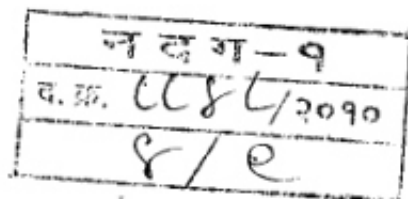 न द ग - १
द. क्र. ८८४८/२०१०
४/९